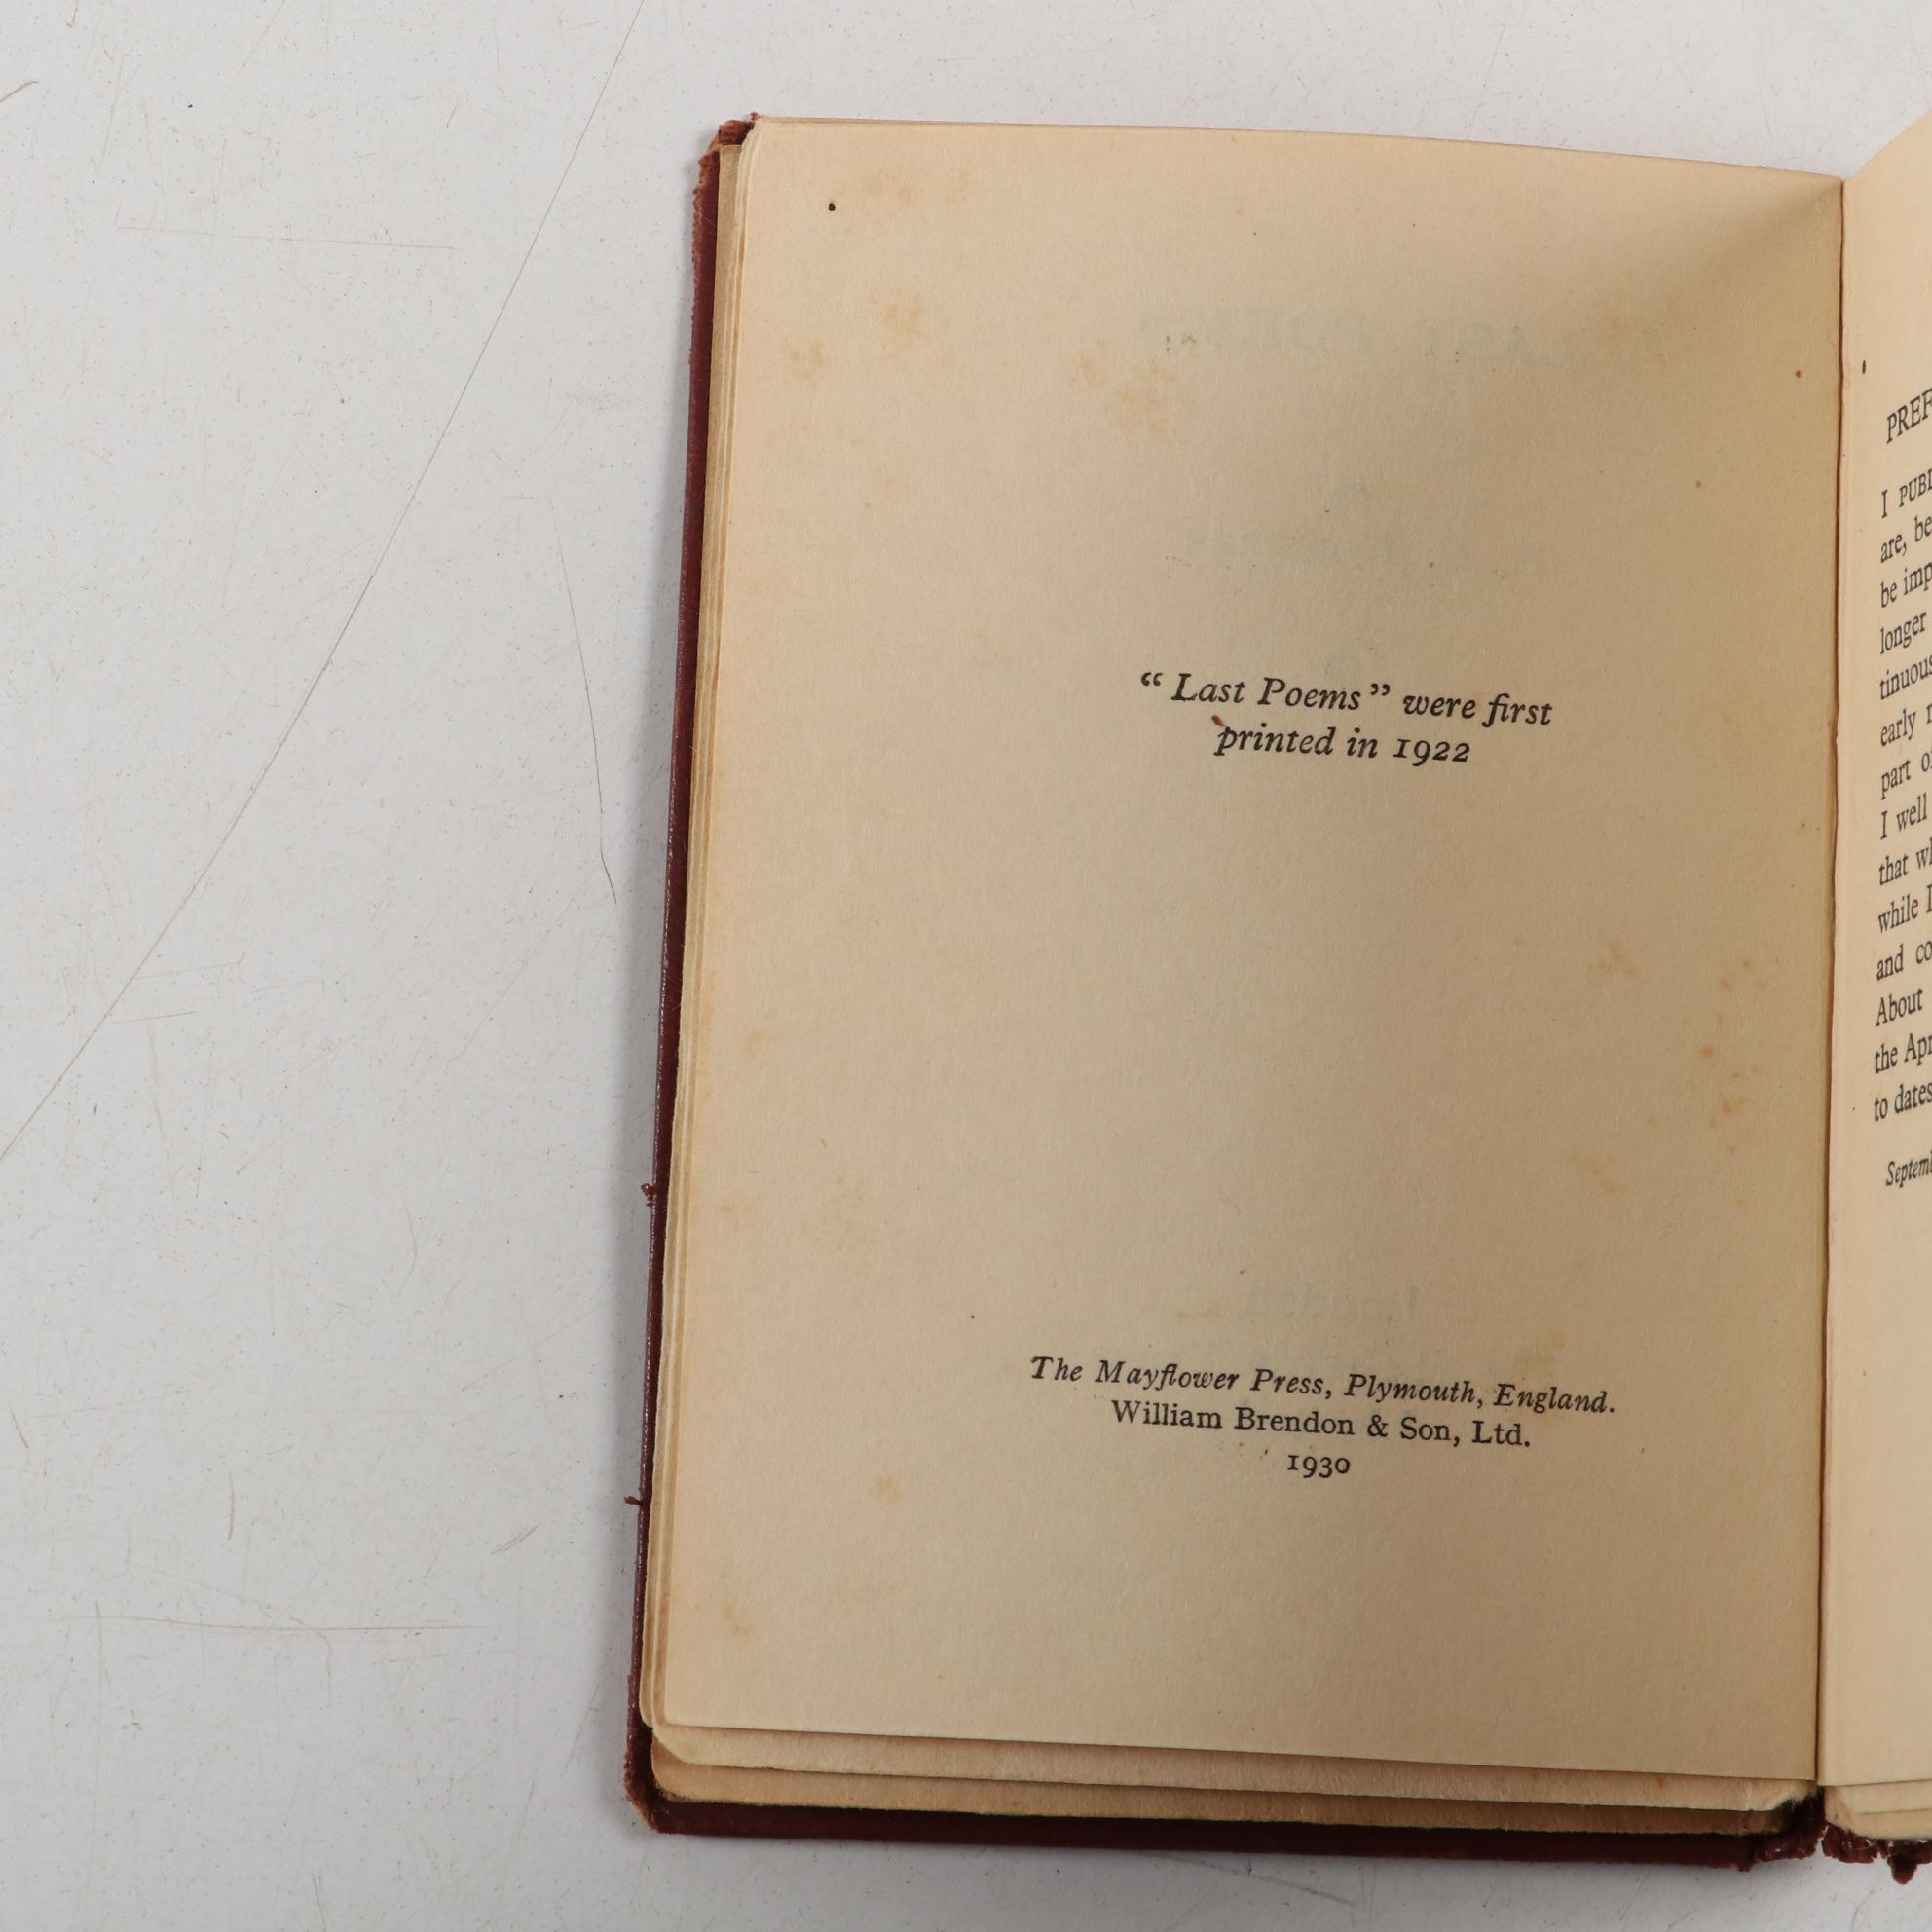 “ Last Poems” were first
printed in 1922
The Mayflower Press, Plymouth, England.
William Brendon & Son, Ltd.
1930
I
are, be
be imp
longer
early
part
I well
that
while I
and co
About
the Apr
to dates